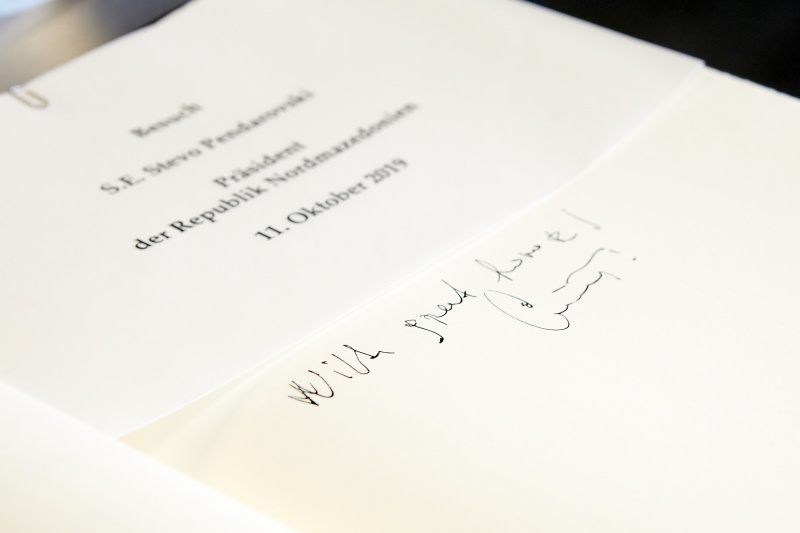 Besuch
S.E. Stevo Pendarovski
Präsident
der Republik Nordmazedonien
11. Oktober 2019
With great